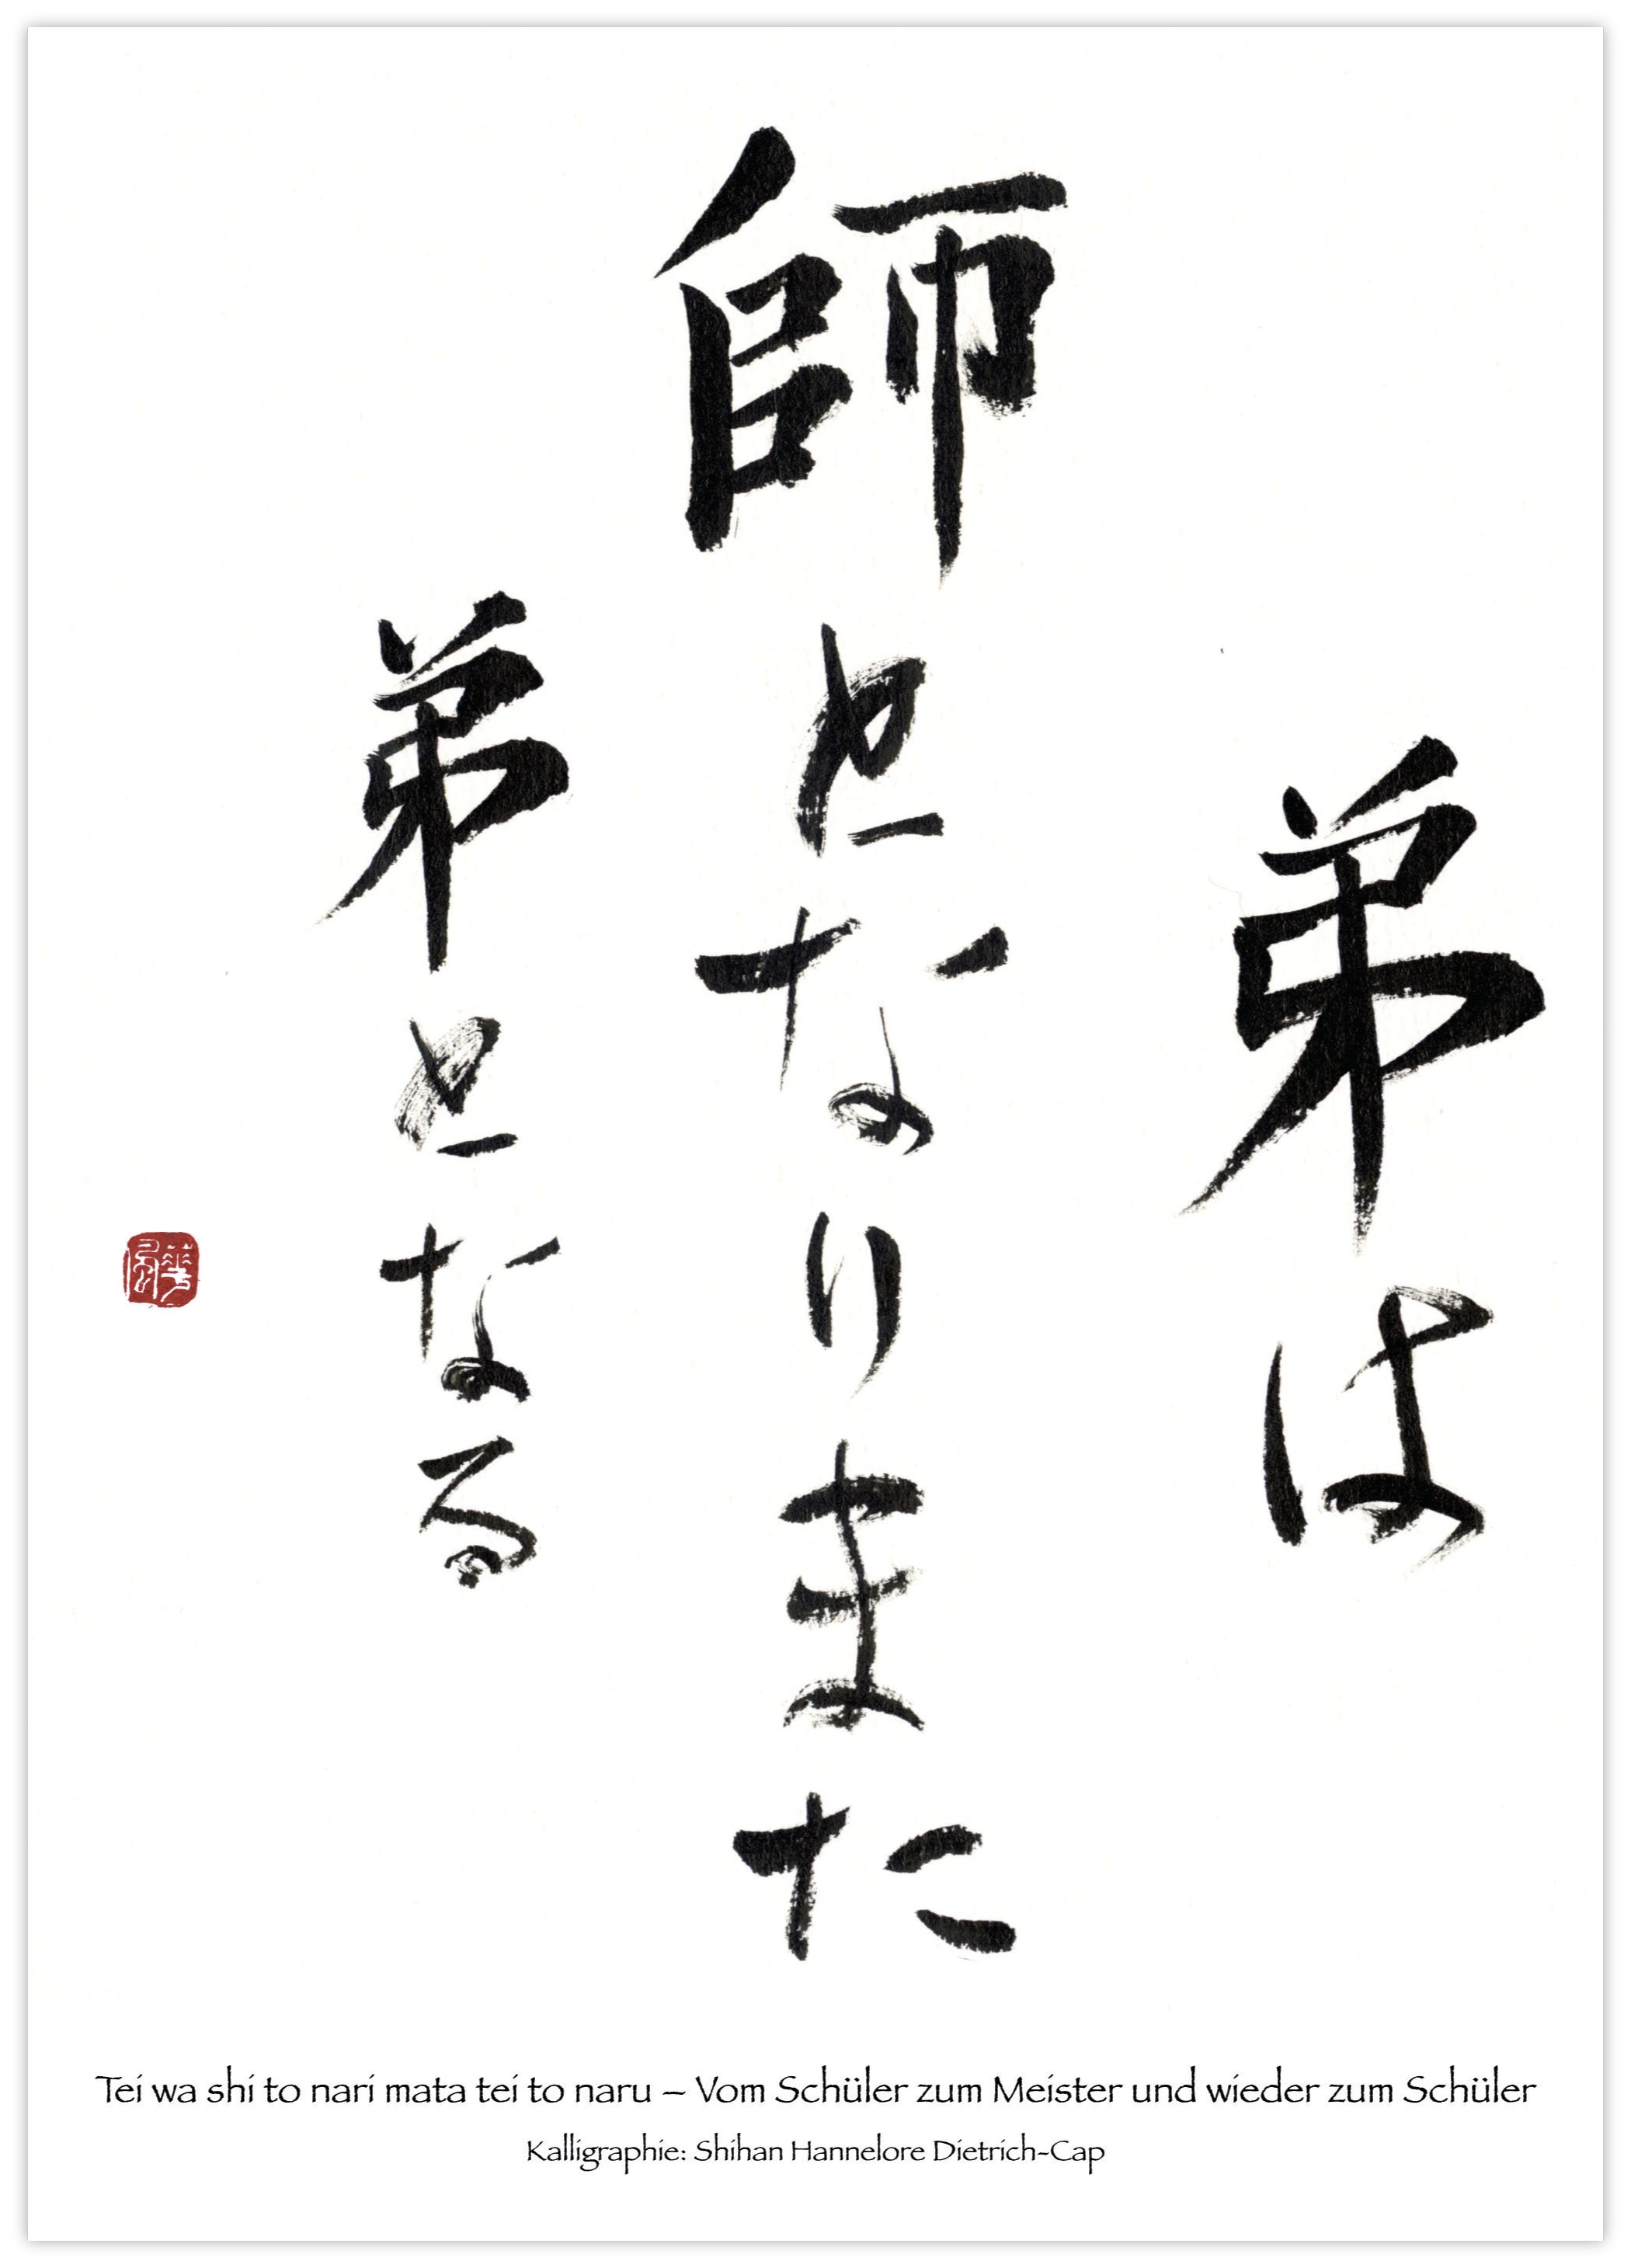 弟は
師となりまた
弟となる
Tei wa shi to nari mata tei to naru – Vom Schüler zum Meister und wieder zum Schüler
Kalligraphie: Shihan Hannelore Dietrich-Cap